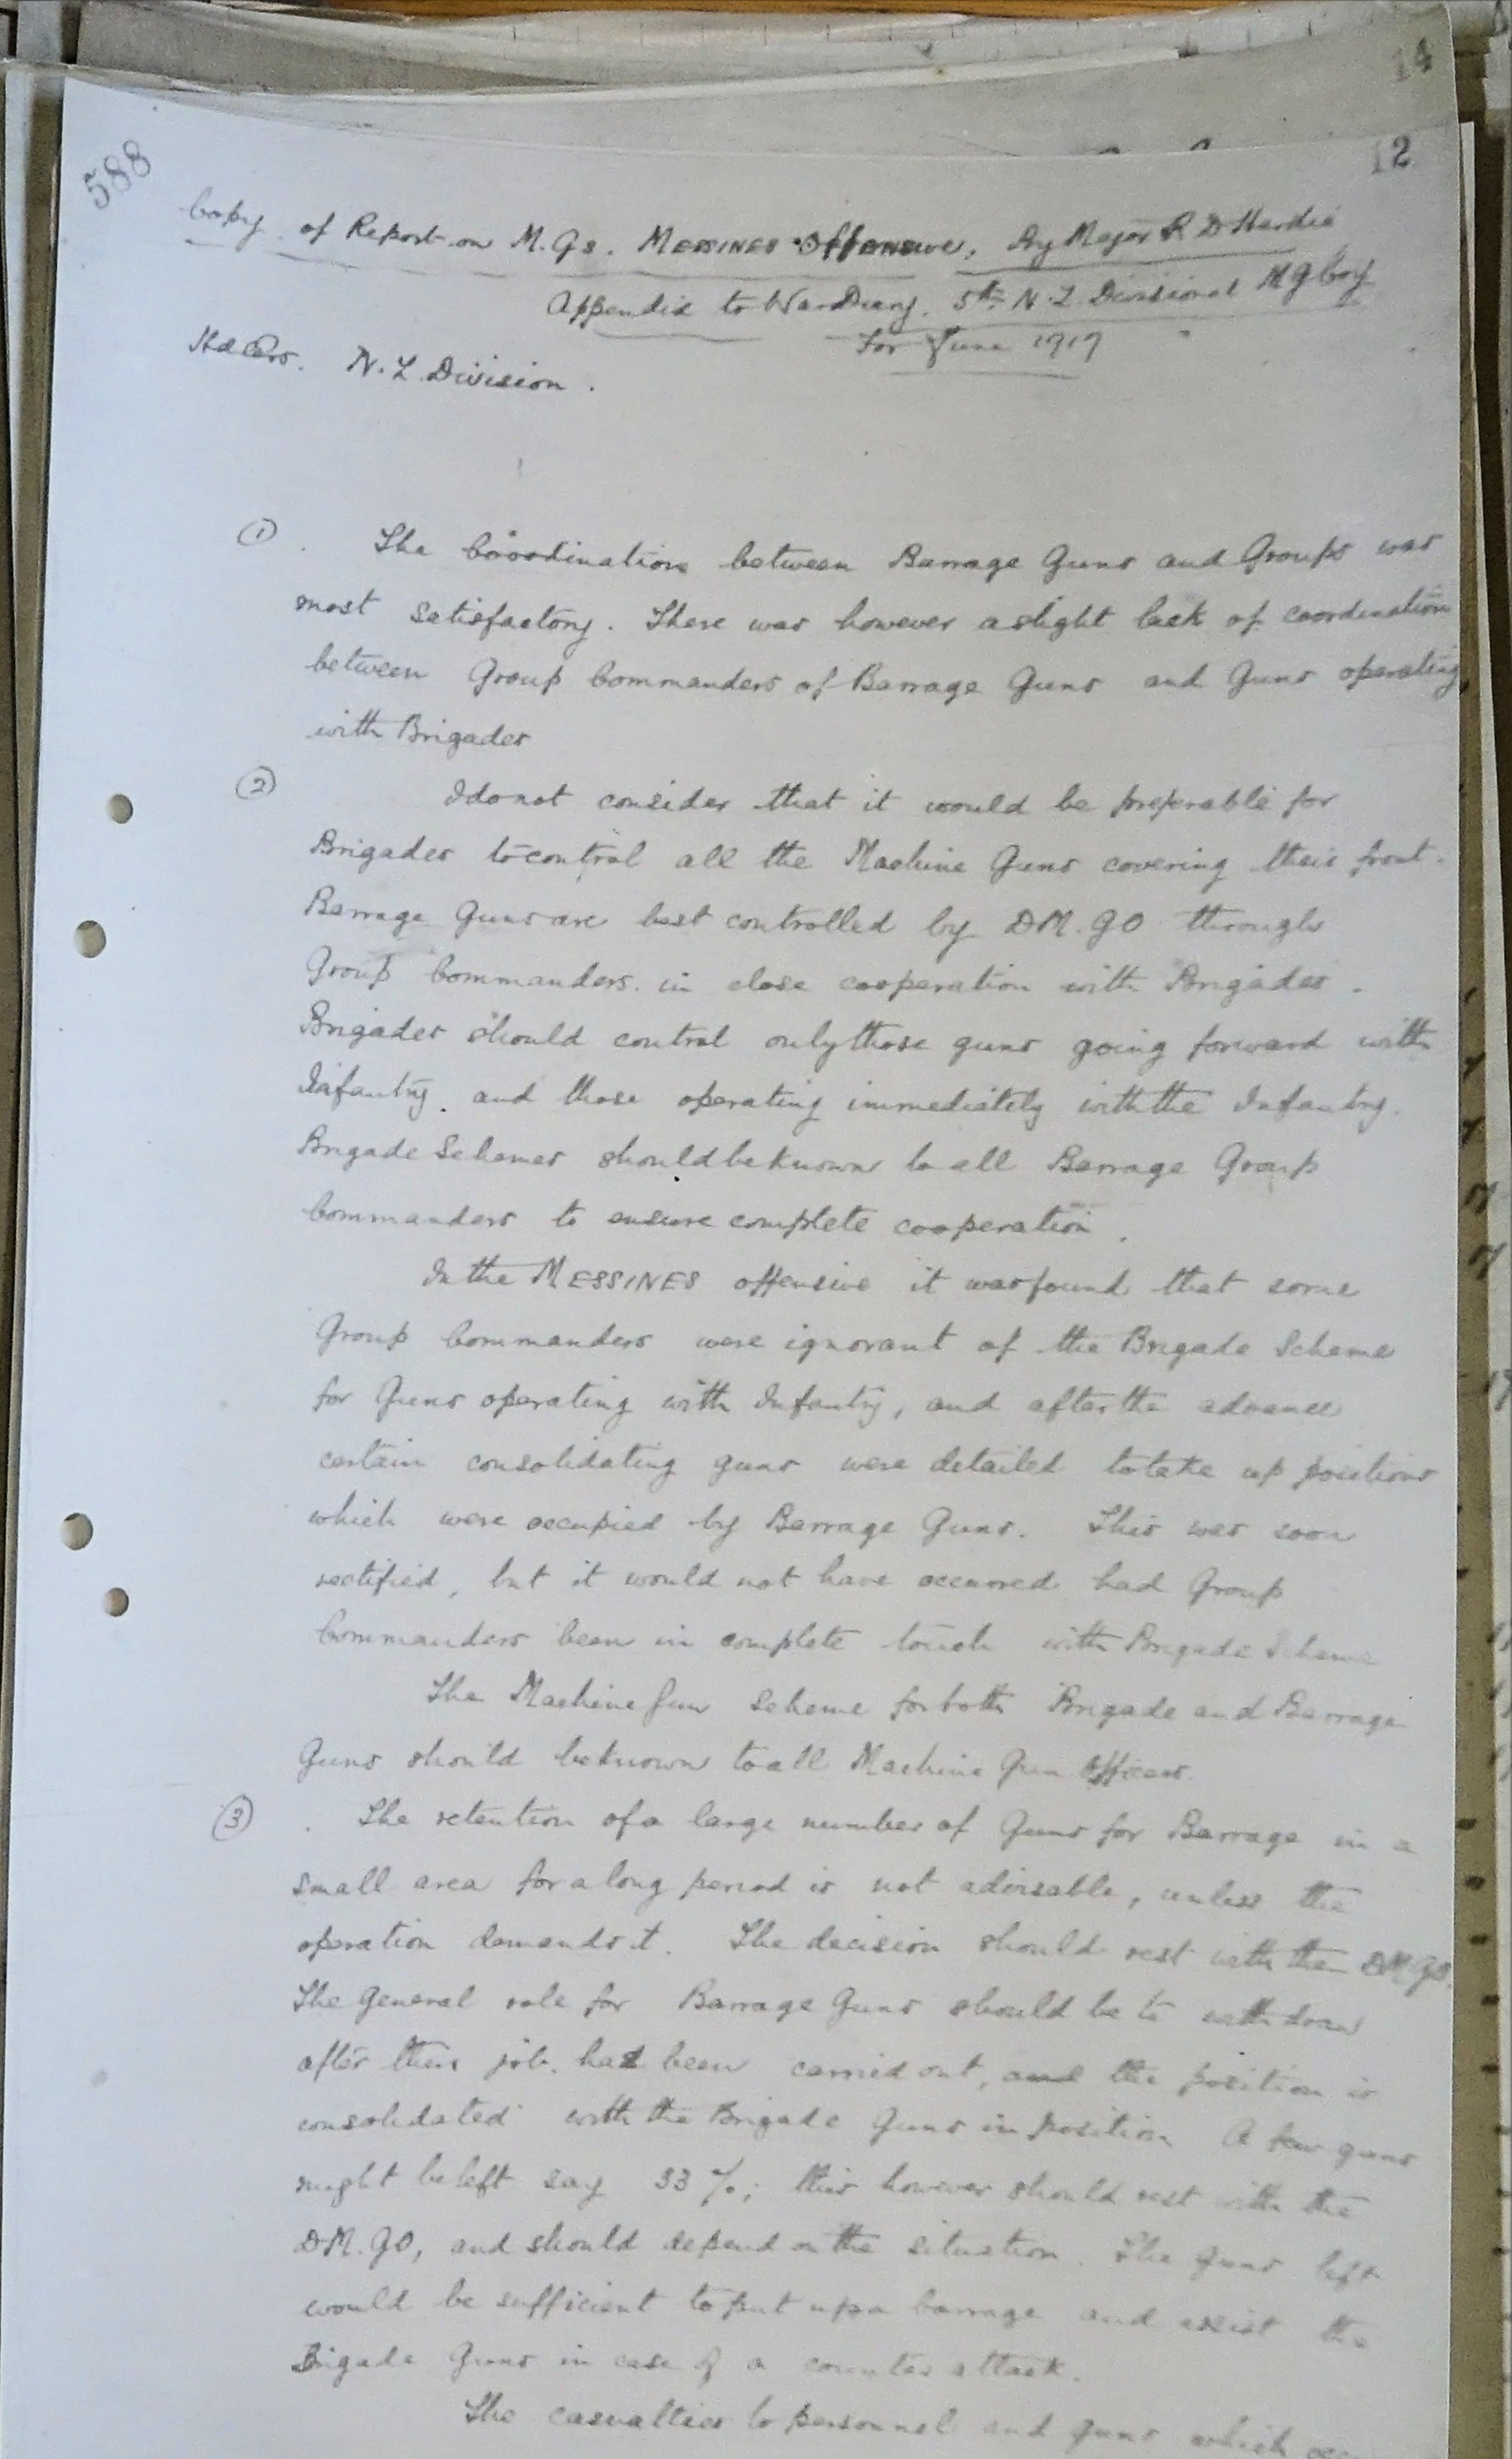 14
12
588
Copy of Report on M.Gs. MESSINES Offensive, By Major R D Hardie
Appendix to War Diary. 5th N.Z. Divisional M G Coy
For June 1917
Hd Qrs. N.Z Division.
(1) . The Cooordination between Barrage Guns and Groups was
most satisfactory. There was however a slight lack of coordination
between Group Commanders of Barrage Guns and Guns operating
with Brigades
(2) I do not consider that it would be preferable for
Brigades to control all the Machine Guns covering their front.
Barrage Guns are best controlled by DM.GO through
Group Commanders. in close cooperation with Brigades.
Brigades should control only those guns going forward with
Infantry. and those operating immediately with the Infantry.
Brigade Schemes should be known to all Barrage Group
Commanders to ensure complete cooperation.
In the MESSINES offensive it was found that some
Group Commanders were ignorant of the Brigade Scheme
for Guns operating with Infantry, and after the advance
certain consolidating guns were detailed to take up positions
which were occupied by Barrage Guns. This was soon
rectified, but it would not have occurred had Group
Commanders been in complete touch with Brigade Scheme
The Machine Gun Scheme for both Brigade and Barrage
Guns should be known to all Machine Gun Officers.
(3) . The retention of a large number of Guns for Barrage in a
small area for a long period is not advisable, unless the
operation demands it. The decision should rest with the DM.GO.
The General role for Barrage Guns should be to withdraw
after their job. had been carried out, and the position is
consolidated with the Brigade Guns in position A few guns
might be left say 33 %; this however should rest with the
DM.GO, and should depend on the situation. The guns left
would be sufficient to put up a barrage and assist the
Brigade Guns in case of a counter attack.
The casualties to personnel and guns which